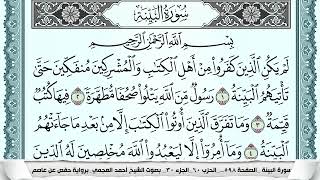 سورة البينة
بسم الله الرحمن الرحيم
لم يكن الذين كفروا من أهل الكتب والمشركين منفكين حتى
تأتيهم البينة ١ رسول من الله يتلوا صحفا مطهرة ٢ فيها كتب
قيمة ٣ وما تفرق الذين أوتوا الكتب إلا من بعد ما جاءتهم
البينة ٤ وما أمروا إلا ليعبدوا الله مخلصين له الدين
سورة البينة الصفحة ٥٩٨ الحزب ٦٠ الجزء ٣٠ بصوت الشيخ احمد العجمي برواية حفص عن عاصم